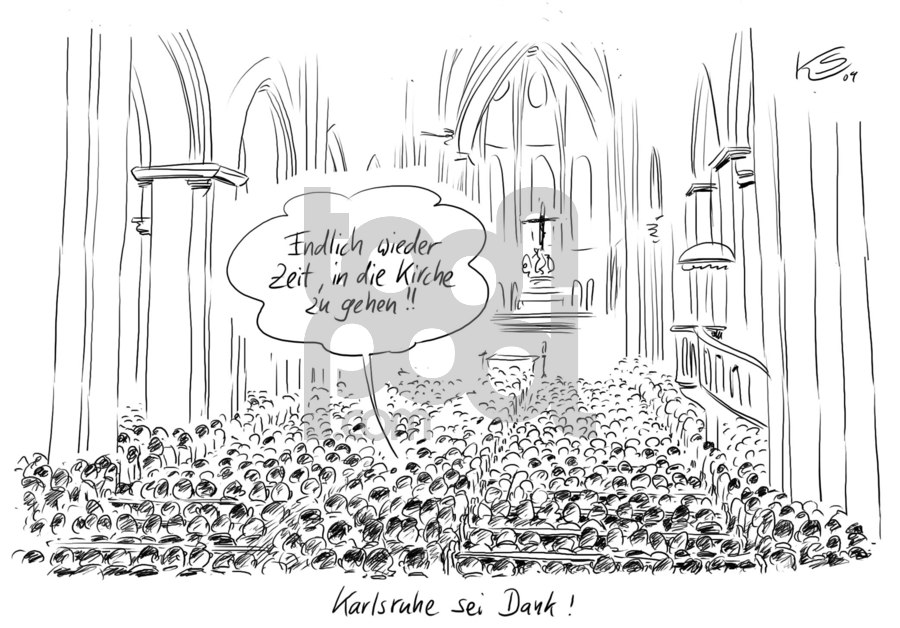 KS 09
Endlich wieder
Zeit, in die Kirche
zu gehen!!
toonpool
.com
Karlsruhe sei Dank!